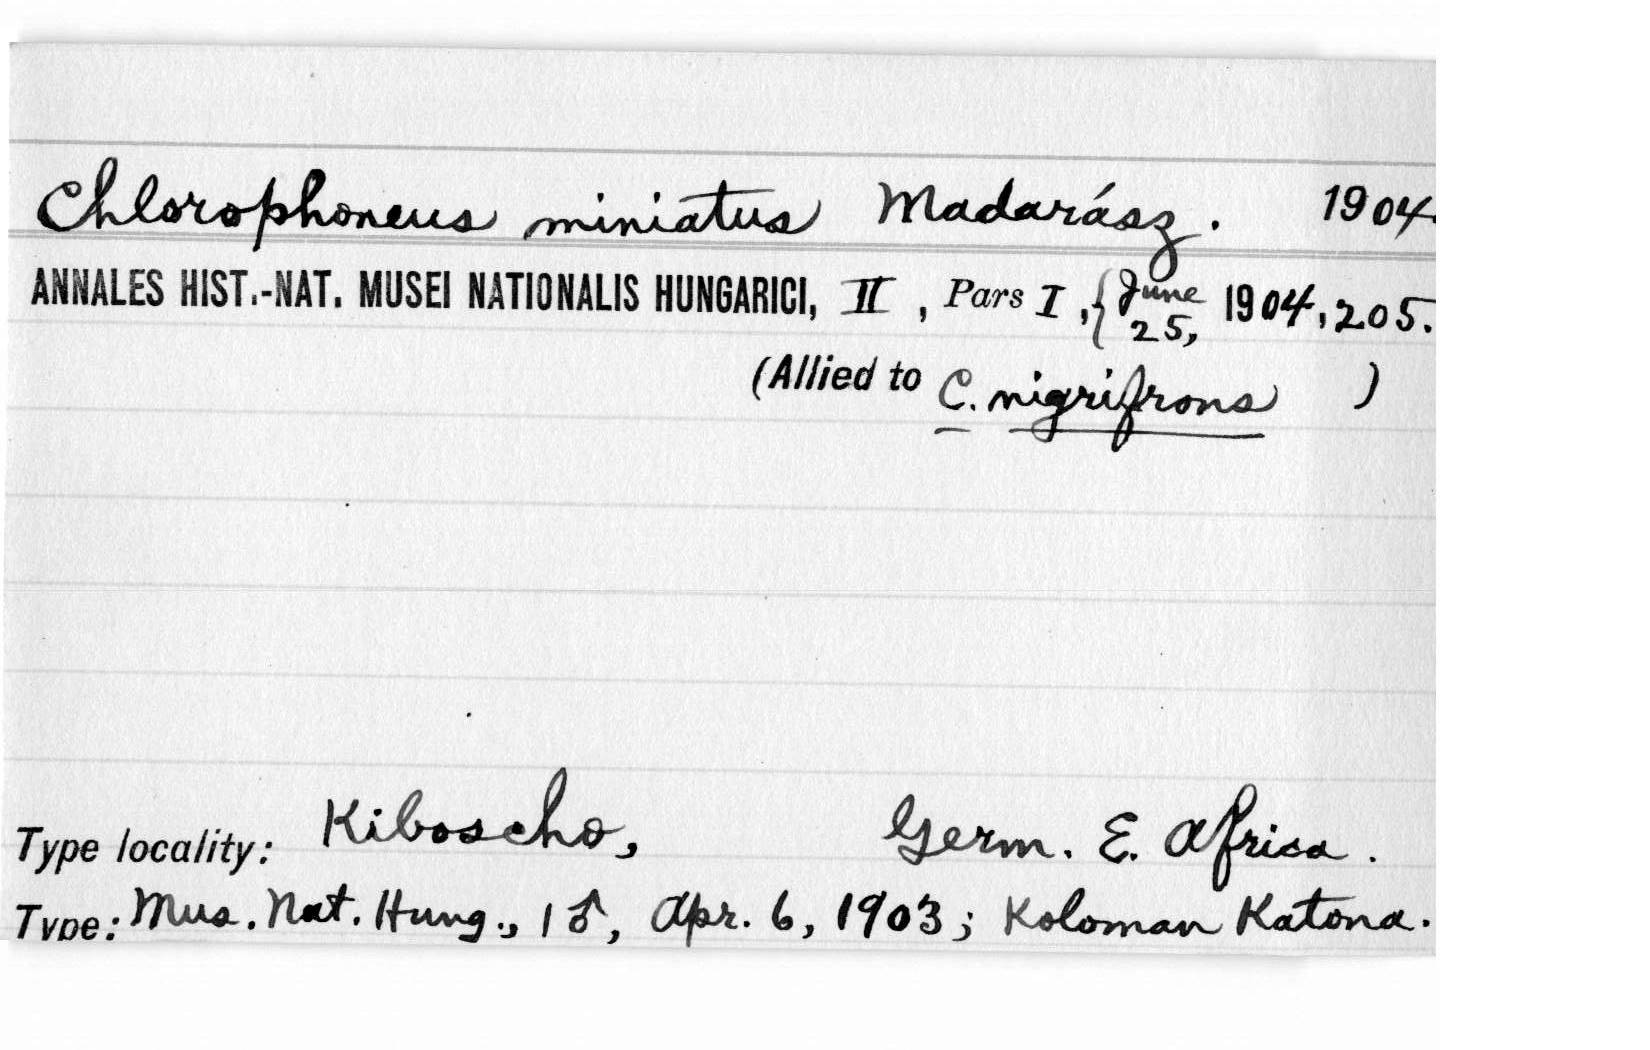 Chlorophoneus miniatus Madarász. 1904.
ANNALES HIST.-NAT. MUSEI NATIONALIS HUNGARICI, II, Pars I, {June 25, 1904, 205.
(Allied to C. nigrifrons )
Type locality: Kiboscho, Germ. E. Africa.
Type: Mus. Nat. Hung., 1♂, Apr. 6, 1903; Koloman Katona.